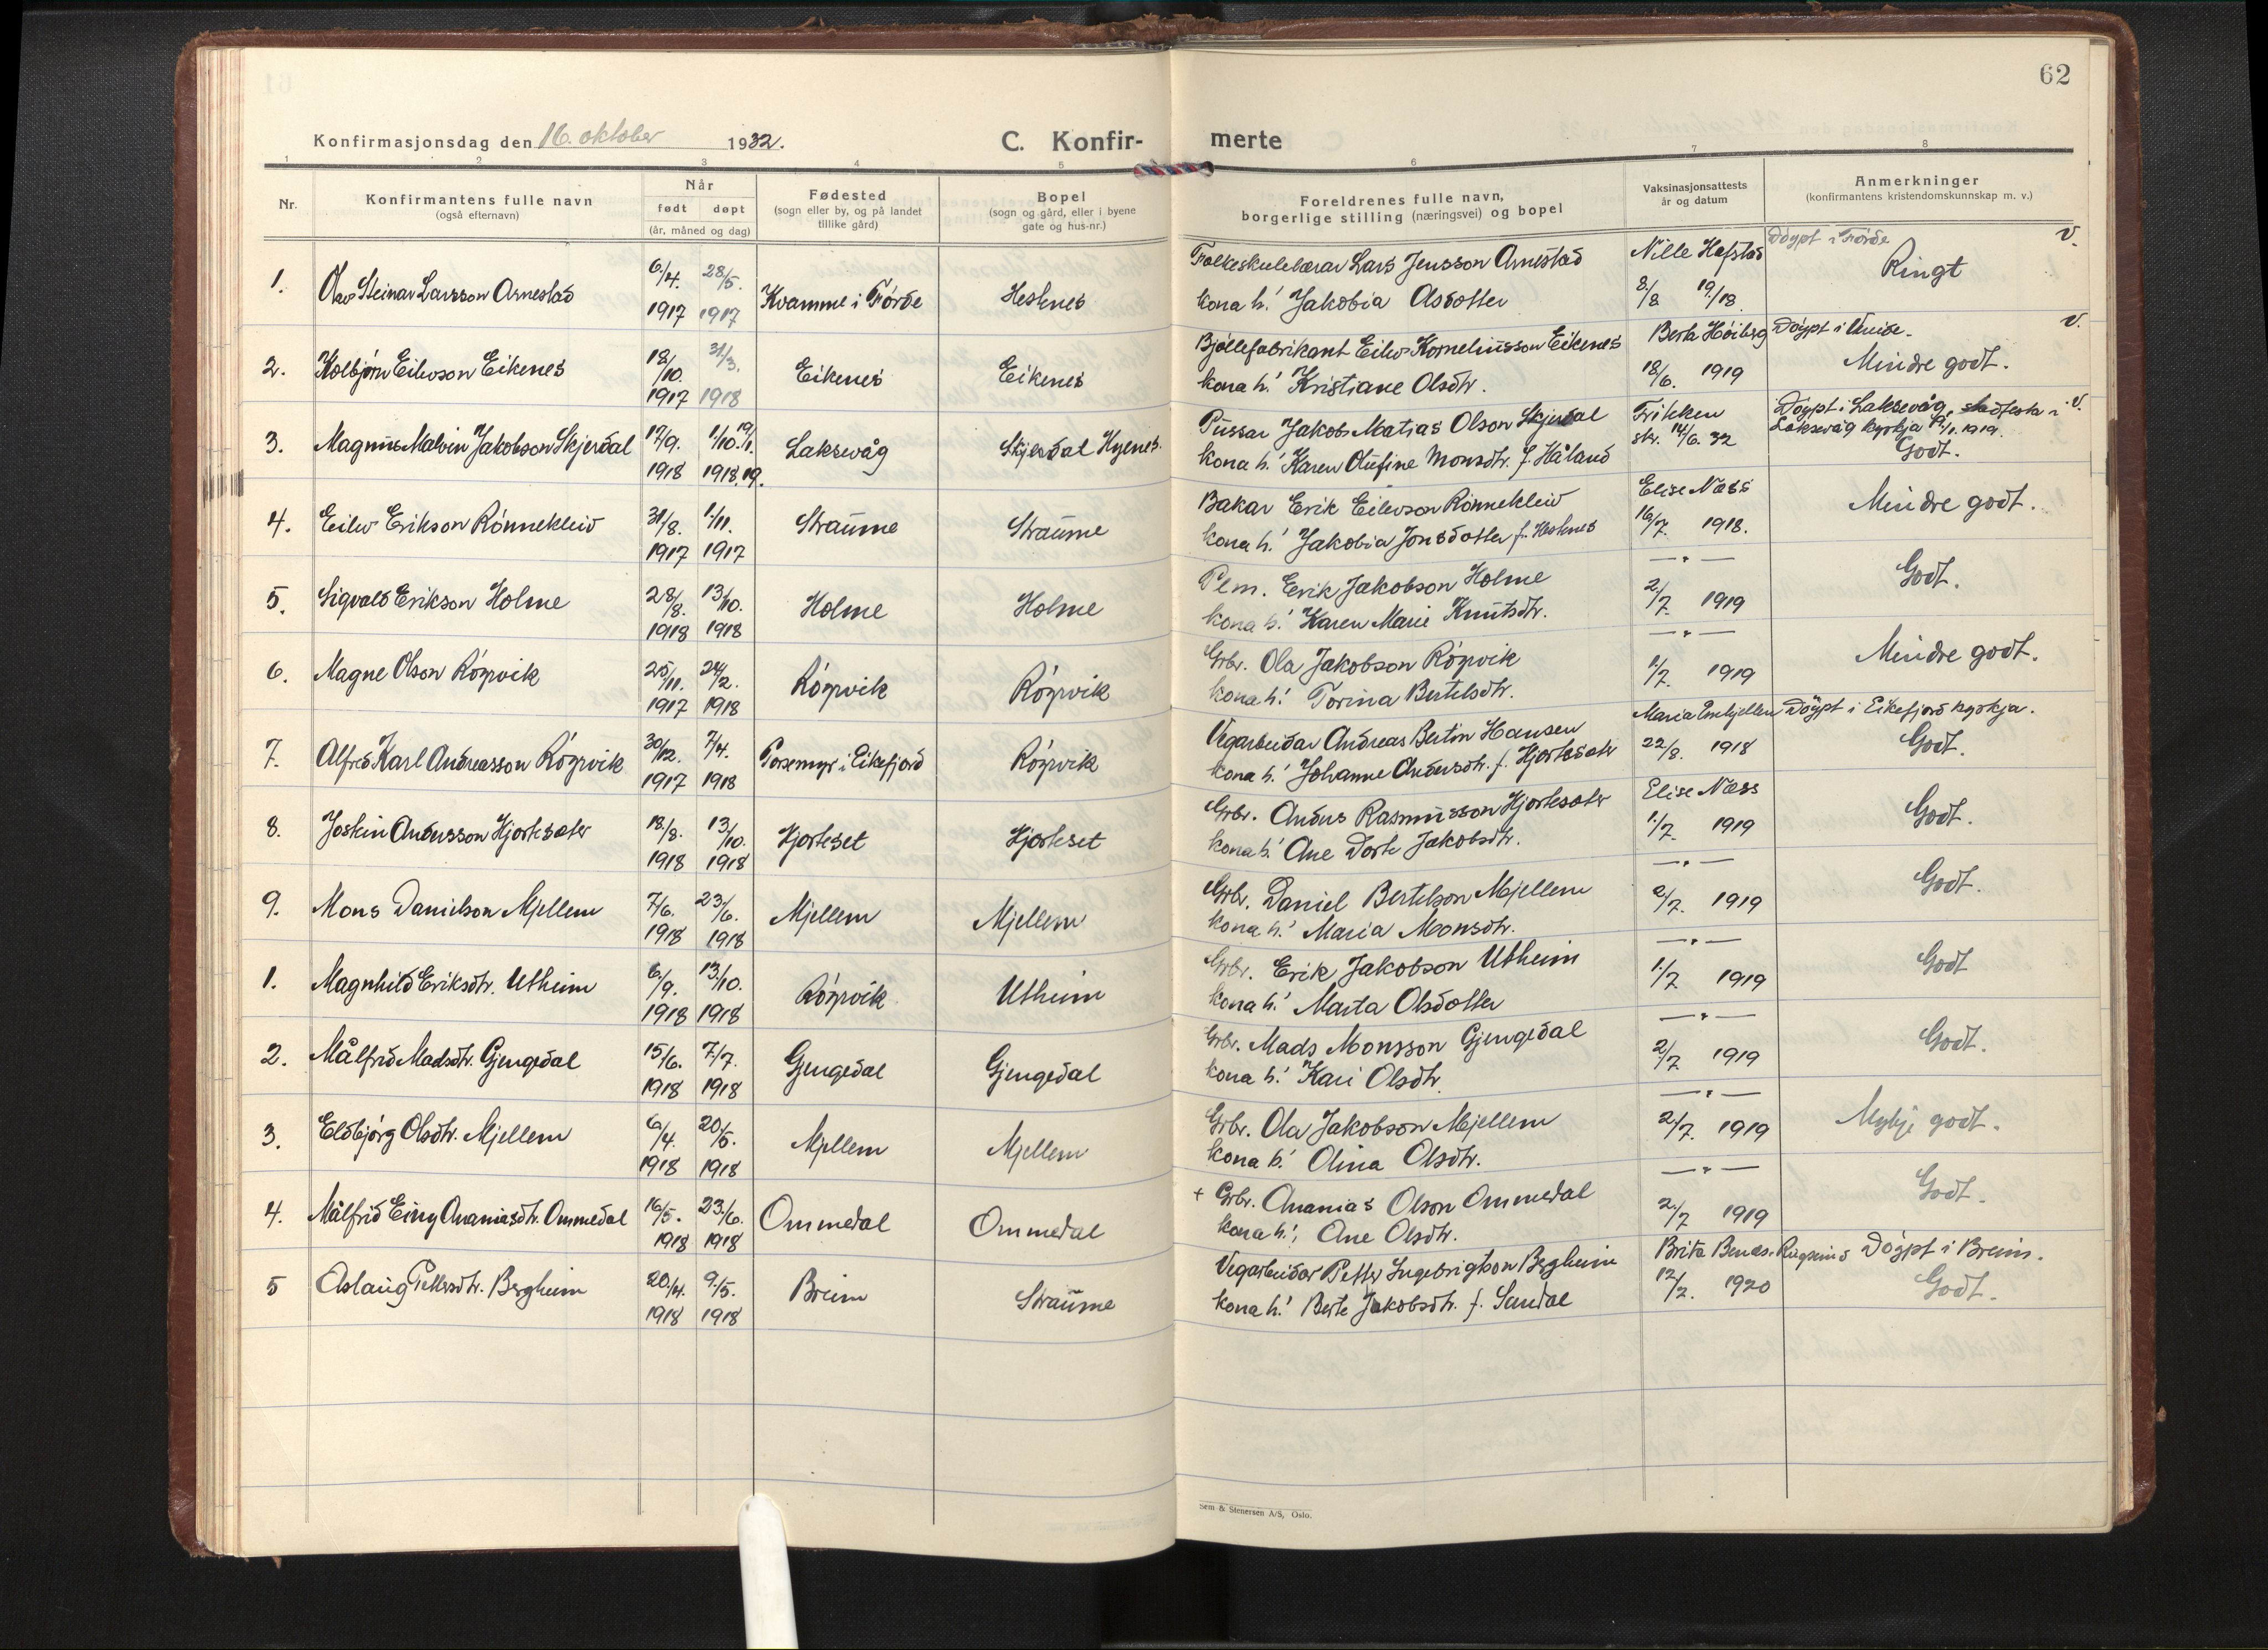 62
Konfirmasjonsdag den 16. oktober 1932.
C. Konfir-
merte
1 2 3 4 5 6 7 8
Nr.
Konfirmantens fulle navn
(også efternavn)
Når
født døpt
(år, måned og dag)
Fødested
(sogn eller by, og på landet
tillike gård)
Bopel
(sogn og gård, eller i byene
gate og hus-nr.)
Foreldrenes fulle navn,
borgerlige stilling (næringsvei) og bopel
Vaksinasjonsattests
år og datum
Anmerkninger
(konfirmantens kristendomskunnskap m. v.)
1. Olav Steinar Larsson Arnestad 6/4. 1917 28/5. 1917 Kvamme i Förde Hesknes
Folkeskulelærar Lars Jensson Arnestad
kona h.' Jakobia Asdotter
Nille Hafstad
8/8 19/18
Döypt i Förde V.
Ringt
2. Kolbjörn Eilevson Eikenes 18/10. 1917 31/3. 1918 Eikenes Eikenes
Bjöllefabrikant Eilev Korneliusson Eikenes
kona h.' Kristiane Olsdtr.
Berta Höiberg
18/6. 1919
Döypt i V.
Mindre godt.
3. Magnus Malvin Jakobson Skjerdal 17/9. 1918 1/10. 19/1. 1918. 19. Laksevåg Skjerdal Hyenes.
Pussar Jakob Matias Olson Skjerdal
kona h.' Karen Olufine Monsdtr. f. Håland
Frikken
skr. 14/6. 32
Döypt i Laksevåg, stadfesta i V.
Laksevåg kyrkja 19/1. 1919.
Godt.
4. Eilev Erikson Rönnekleiv 31/8. 1917 1/11. 1917 Straume Straume
Bakar Erik Eilevson Rönnekleiv
kona h.' Jakobia Jonsdotter f. Hesknes
Elise Næss
16/7. 1918.
Mindre godt.
5. Sigvald Erikson Holme 28/8. 1918 13/10. 1918 Holme Holme
Plm. Erik Jakobson Holme
kona h.' Karen Marie Knutsdtr.
— " —
2/7. 1919
Godt.
6. Magne Olson Röyrvik 25/11. 1917 24/2. 1918 Röyrvik Röyrvik
Grbr. Ola Jakobson Röyrvik
kona h.' Torina Bertelsdtr.
— " —
1/7. 1919
Mindre godt.
7. Alfred Karl Andreasson Röyrvik 30/12. 1917 7/4. 1918 Porsemyr i Eikefjord Röyrvik
Vegarbeidar Andreas Bertin Hansen
kona h.' Johanne Andersdtr. f. Hjortesæter
Maria
22/8. 1918
Döypt i Eikefjord kyrkja.
Godt.
8. Joskin Andersson Hjortesæter 18/8. 1918 13/10. 1918 Hjorteset Hjorteset
Grbr. Anders Rasmusson Hjortesæter
kona h.' Ane Dorte Jakobsdtr.
Elise Næss
1/7. 1919
Godt.
9. Mons Danielson Mjellem 7/6. 1918 23/6. 1918 Mjellem Mjellem
Grbr. Daniel Bertelson Mjellem
kona h.' Maria Monsdtr.
— " —
2/7. 1919
Godt.
1. Magnhild Eriksdtr. Utheim 6/9. 1918 13/10. 1918 Röyrvik Utheim
Grbr. Erik Jakobson Utheim
kona h.' Marta Olsdotter
— " —
1/7 1919
Godt
2. Målfrid Madsdtr. Gjengedal 15/6. 1918 7/7. 1918 Gjengedal Gjengedal
Grbr. Mads Monsson Gjengedal
kona h.' Kari Olsdtr.
— " —
2/7 1919
Godt.
3. Eldbjörg Olsdtr. Mjellem 6/4. 1918 20/5. 1918 Mjellem Mjellem
Grbr. Ola Jakobson Mjellem
kona h.' Olina Olsdtr.
— " —
2/7. 1919
Mykje godt.
4. Målfrid Einy Ananiasdtr. Ommedal 16/5. 1918 23/6. 1918 Ommedal Ommedal
+ Grbr. Ananias Olson Ommedal
kona h.', Ane Olsdtr.
— " —
2/7 1919
Godt.
5 Aslaug Pettersdtr. Bergheim 20/4. 1918 9/5. 1918 Breim Straume
Vegarbeidar Petter Ingebrigtson Bergheim
kona h.' Berte Jakobsdtr. f. Sandal
Brita
12/2. 1920
Döypt i Breim.
Godt.
Sem & Stenersen A/S, Oslo.